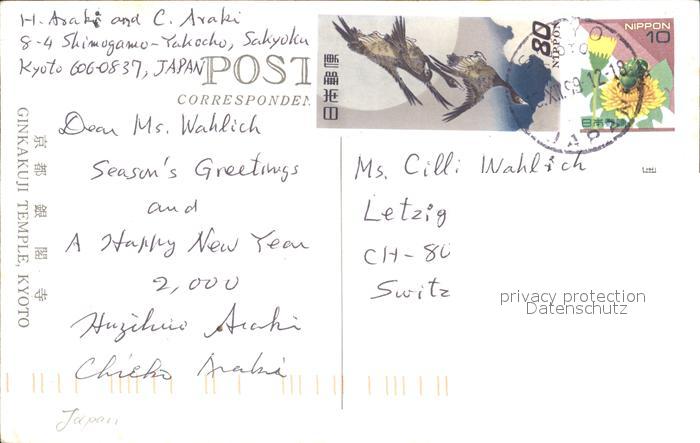 H. Araki and C. Araki
8-4 Shimogamo-Takocho, Sakyoku
Kyoto 606-0837, JAPAN
POST
CORRESPONDEN
日本郵便
80
NIPPON
NIPPON
10
日本郵便
JAPAN
京都 銀閣寺
GINKAKUJI TEMPLE, KYOTO
Dear Ms. Wahlich
Season's Greetings
and
A Happy New Year
2,000
Araki
Chieko Araki
Japan
Ms. Cilli Wahlich
Letzig
CH-80
Switz
privacy protection
Datenschutz